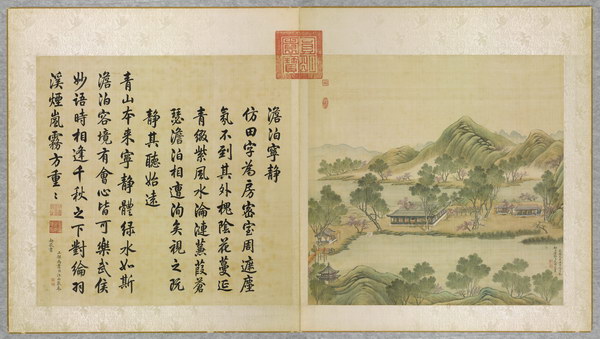 澹泊寧靜
仿田字為房密室周遮塵
氛不到其外槐陰花蔓延
青綴紫風水淪漣蒹葭蒼
瑟澹泊相遭洵矣視之既
靜其聽始遠
青山本來寧靜體綠水如斯
澹泊容境有會心皆可樂武侯
妙語時相逢千秋之下對綸羽
溪煙嵐霧方重重